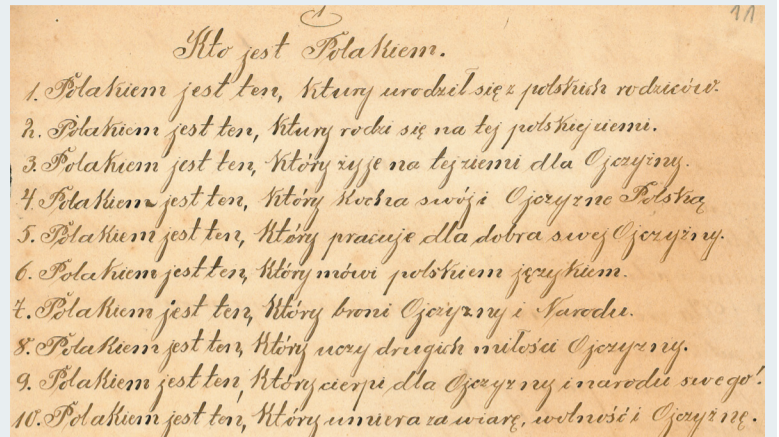 1
11
Kto jest Polakiem.
1. Polakiem jest ten, ktury urodził się z polskich rodziców.
2. Polakiem jest ten, ktury rodzi się na tej polskiej ciemi.
3. Polakiem jest ten, który żyje na tej ziemi dla Ojczyzny.
4. Polakiem jest ten, który kocha swój i Ojczyzne Polską
5. Polakiem jest ten, który pracuje dla dobra swej Ojczyzny.
6. Polakiem jest ten, który mówi polskiem językiem.
7. Polakiem jest ten, który broni Ojczyzny i Narodu.
8. Polakiem jest ten, który uczy drugich miłości Ojczyzny.
9. Polakiem jest ten, który cierpi dla Ojczyzny i narodu swego!
10. Polakiem jest ten, który umiera za wiarę, wolność i Ojczyznę.